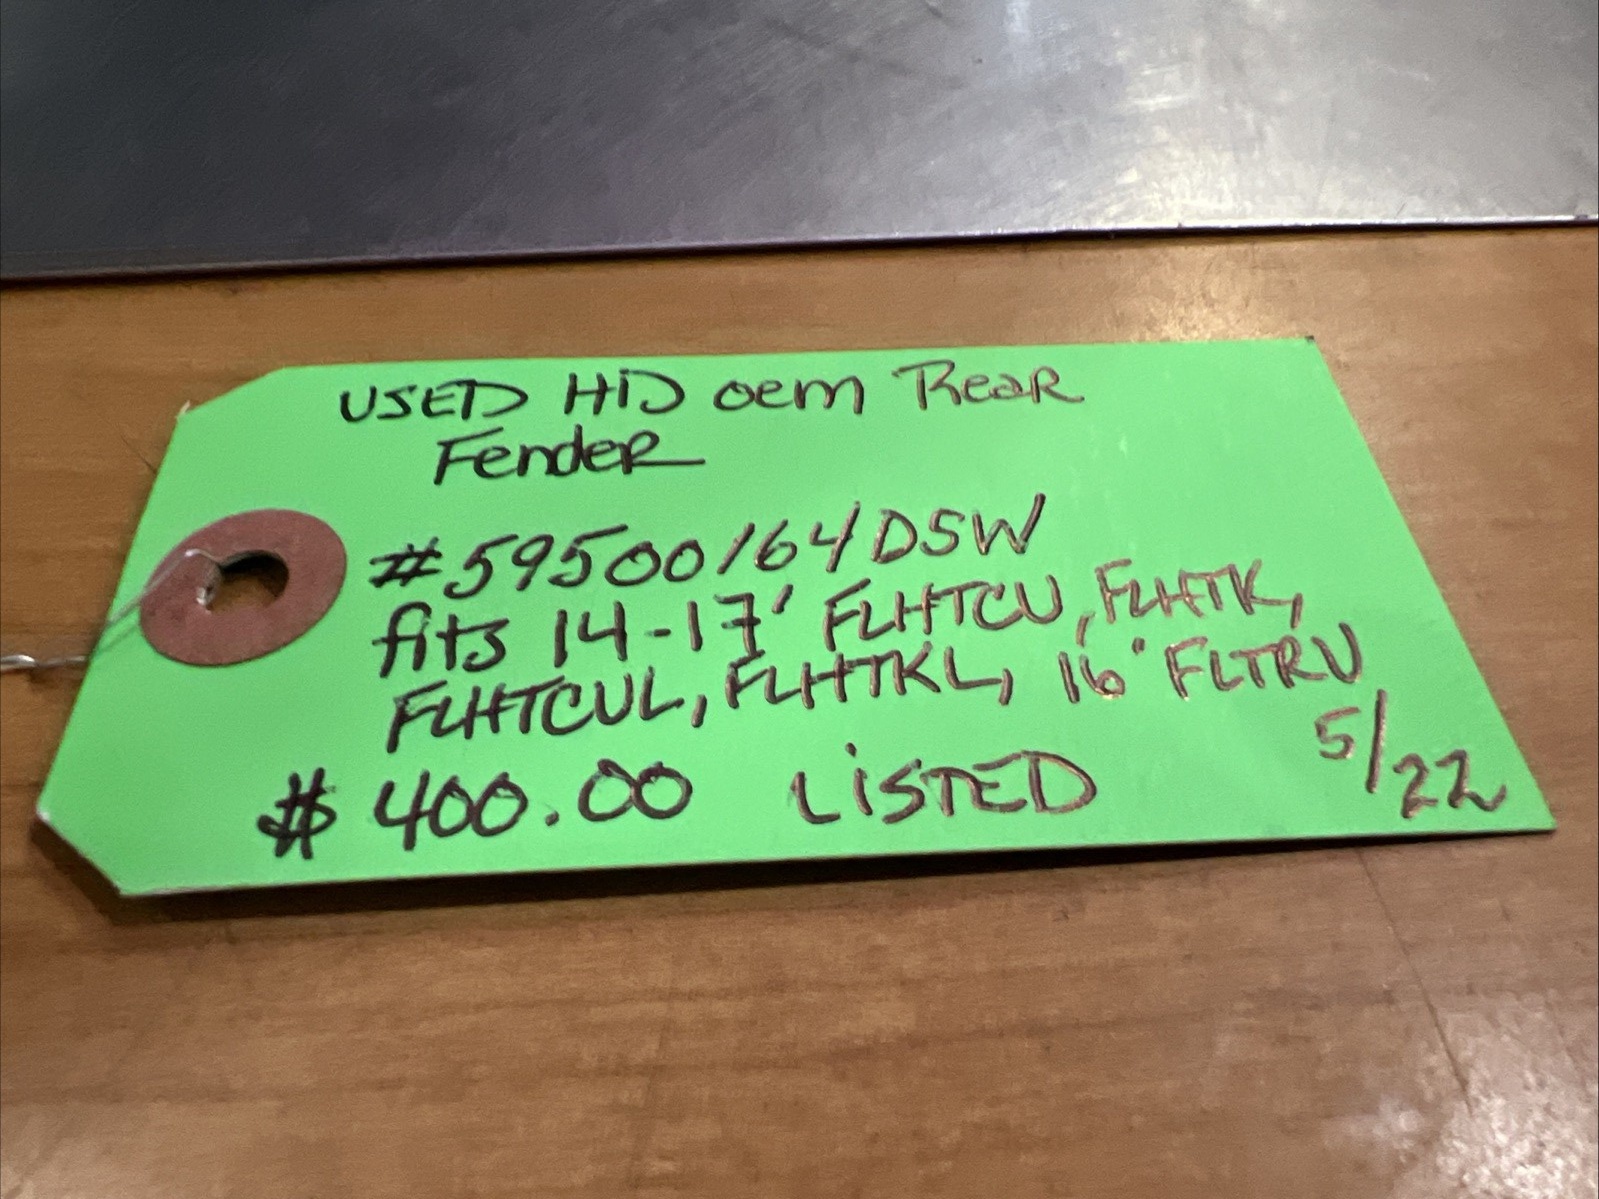 USED HD oem Rear
Fender
#59500164DSW
fits 14-17' FLHTCU, FLHTK,
FLHTCUL, FLHTKL, 16' FLTRU
$400.00 LiSTED 5/22